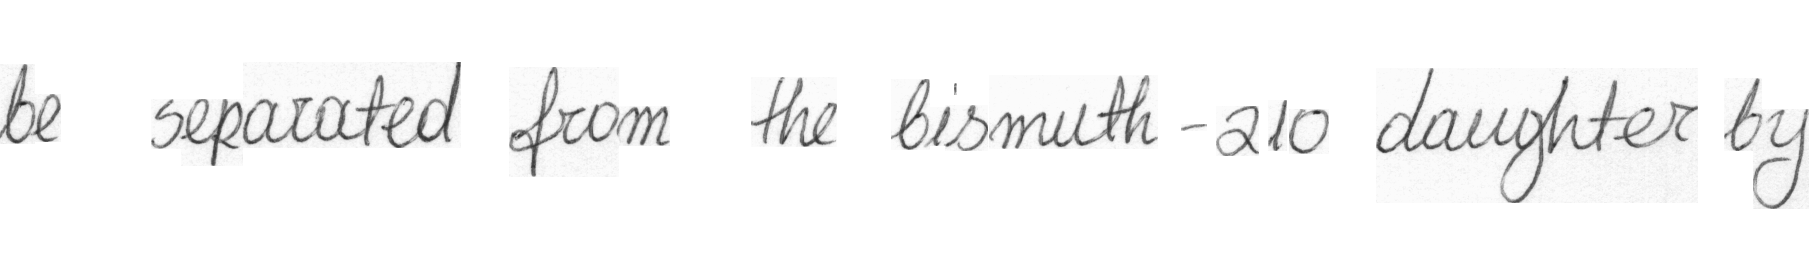 be separated from the bismuth-210 daughter by